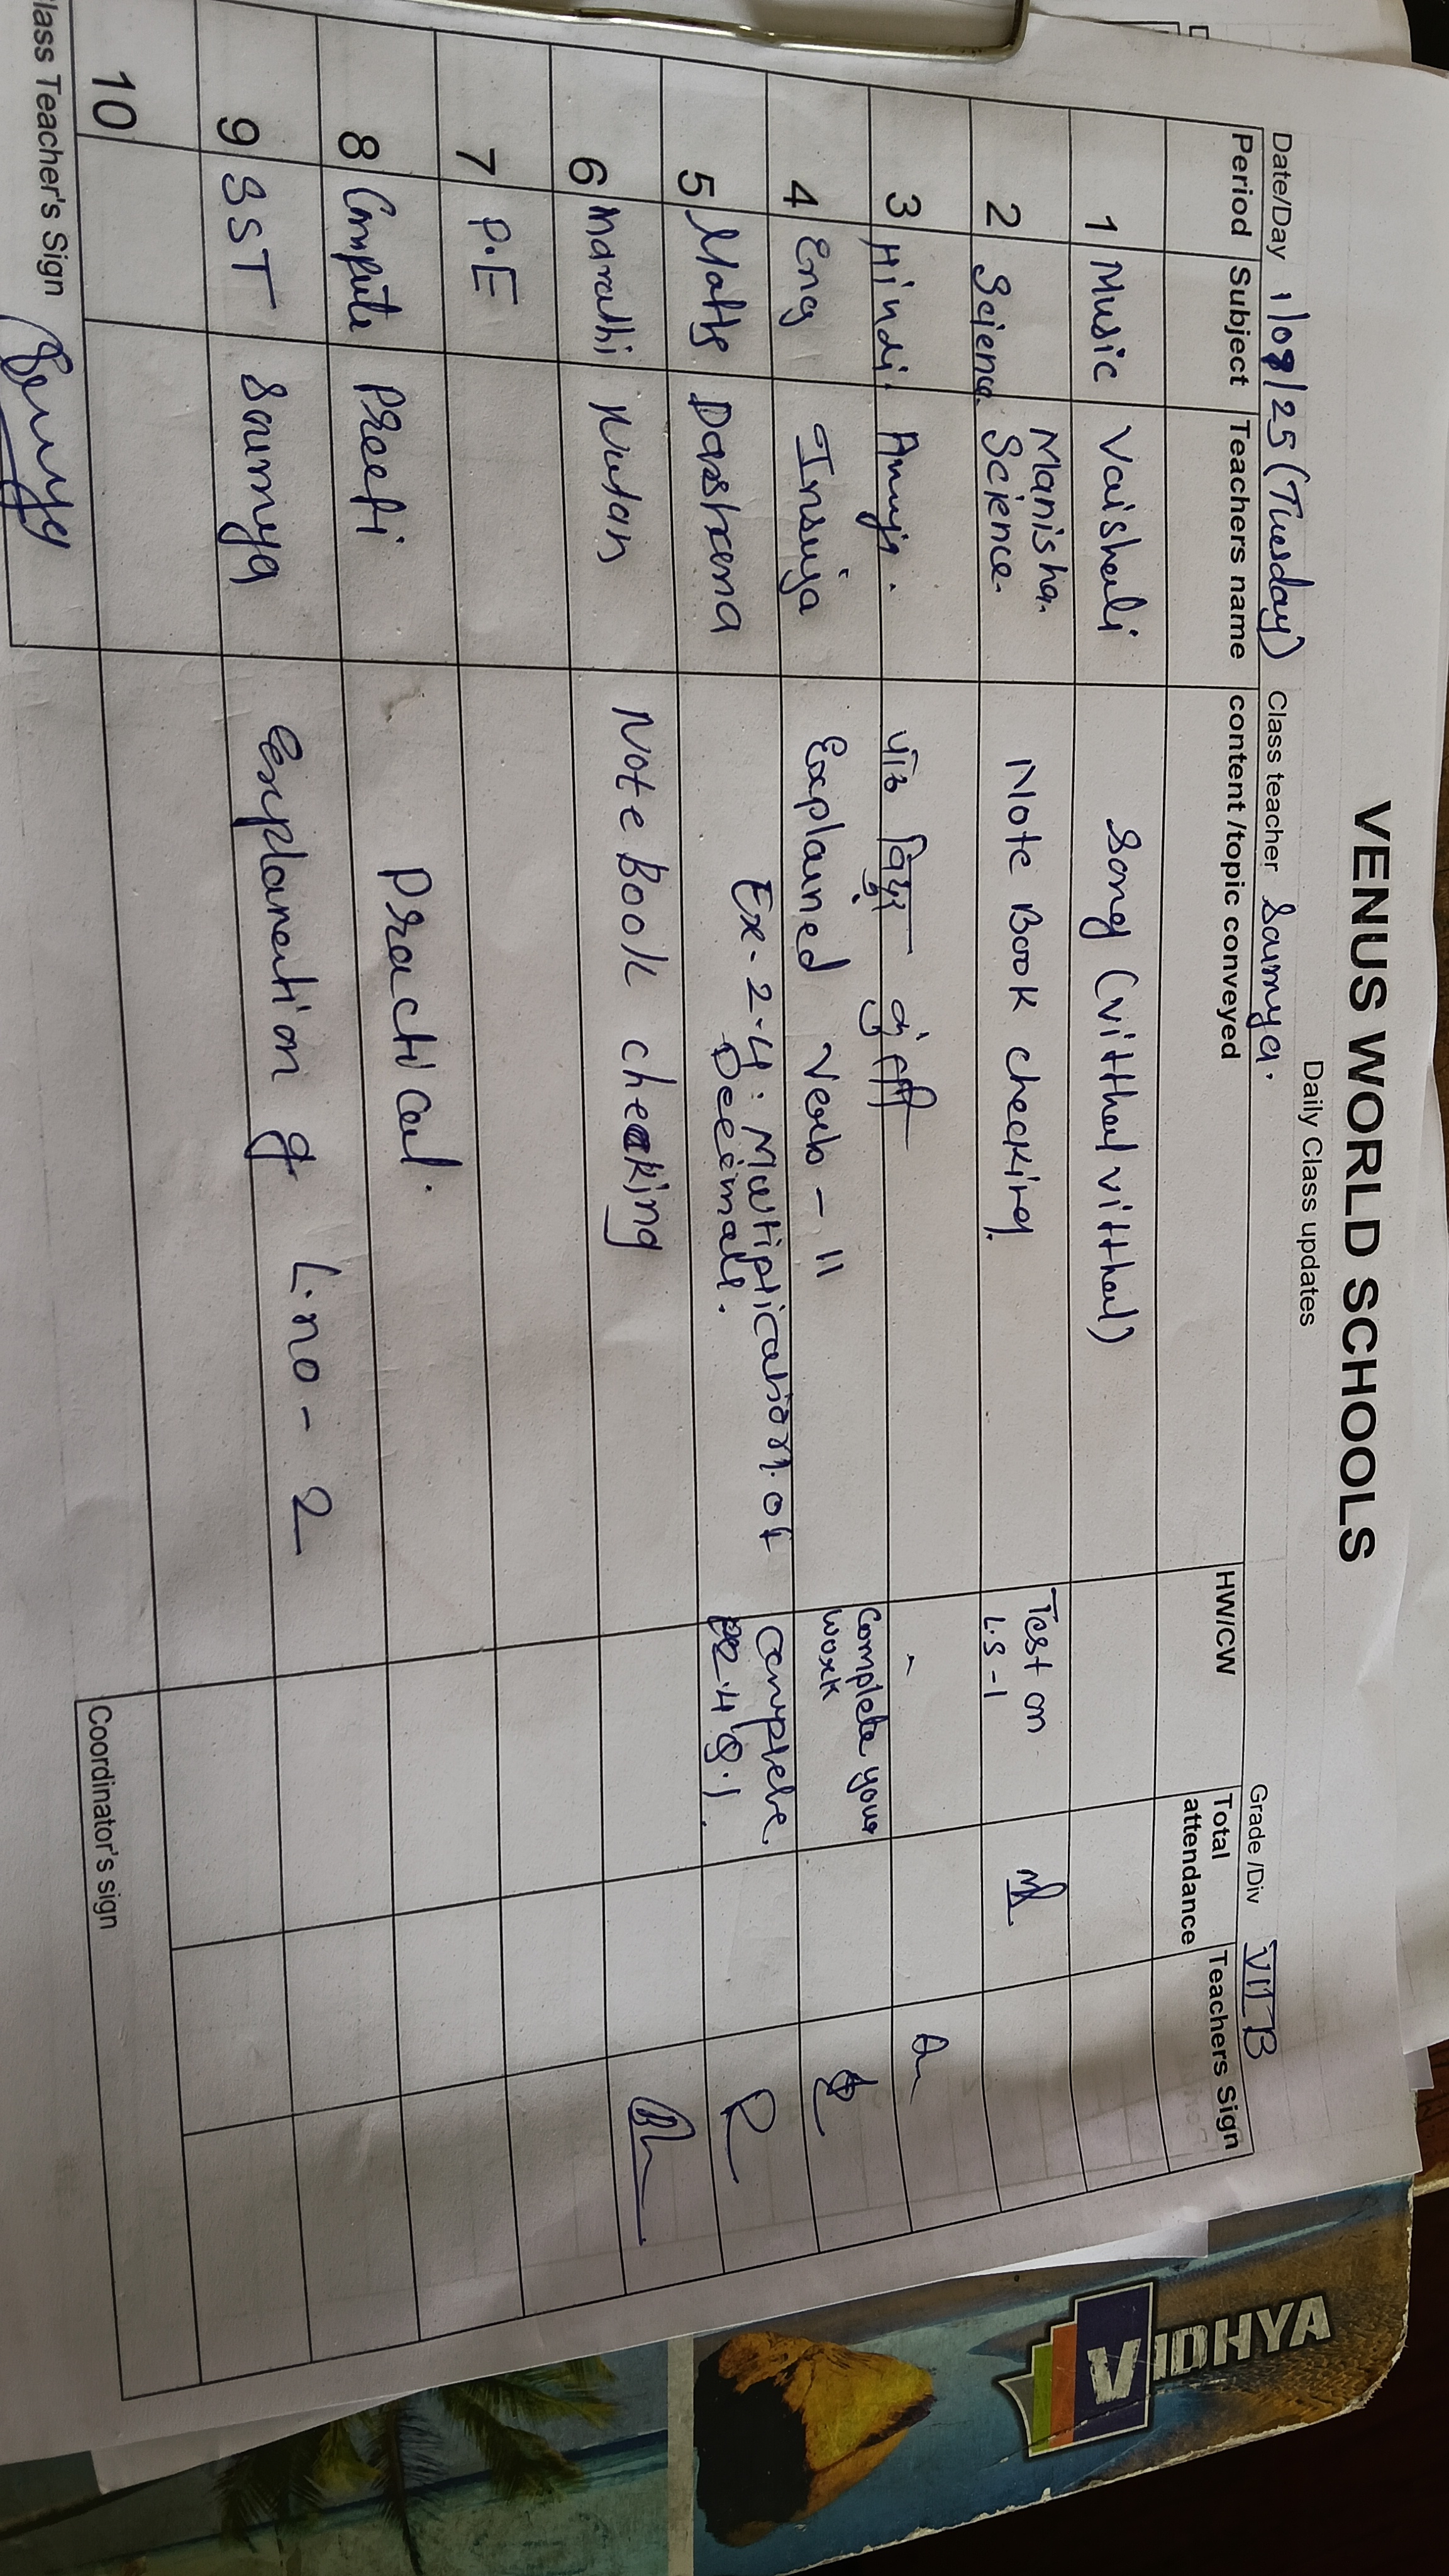 VENUS WORLD SCHOOLS
Daily Class updates
Date/Day 1/08/25 (Tuesday) Class teacher Saumya. Grade /Div VII B
Period Subject Teachers name content /topic conveyed HW/CW Total attendance Teachers Sign
1 Music Vaishali Song (vitthal vitthal)
2 Science Manisha. Science. Note Book checking. Test on L.S-1
3 Hindi. Anuja. -
4 Eng Insiya Explained Verb - 11 Complete your work
5 Maths Darshana Ex-2.4: Multiplication of Decimals. Complete 2.4 Q.1.
6 Marathi Nutan Note Book checking
7 P.E
8 Compute Preeti Practical.
9 SST Saumya Explanation of L.no - 2
10
lass Teacher's Sign
Coordinator's sign
VIDHYA